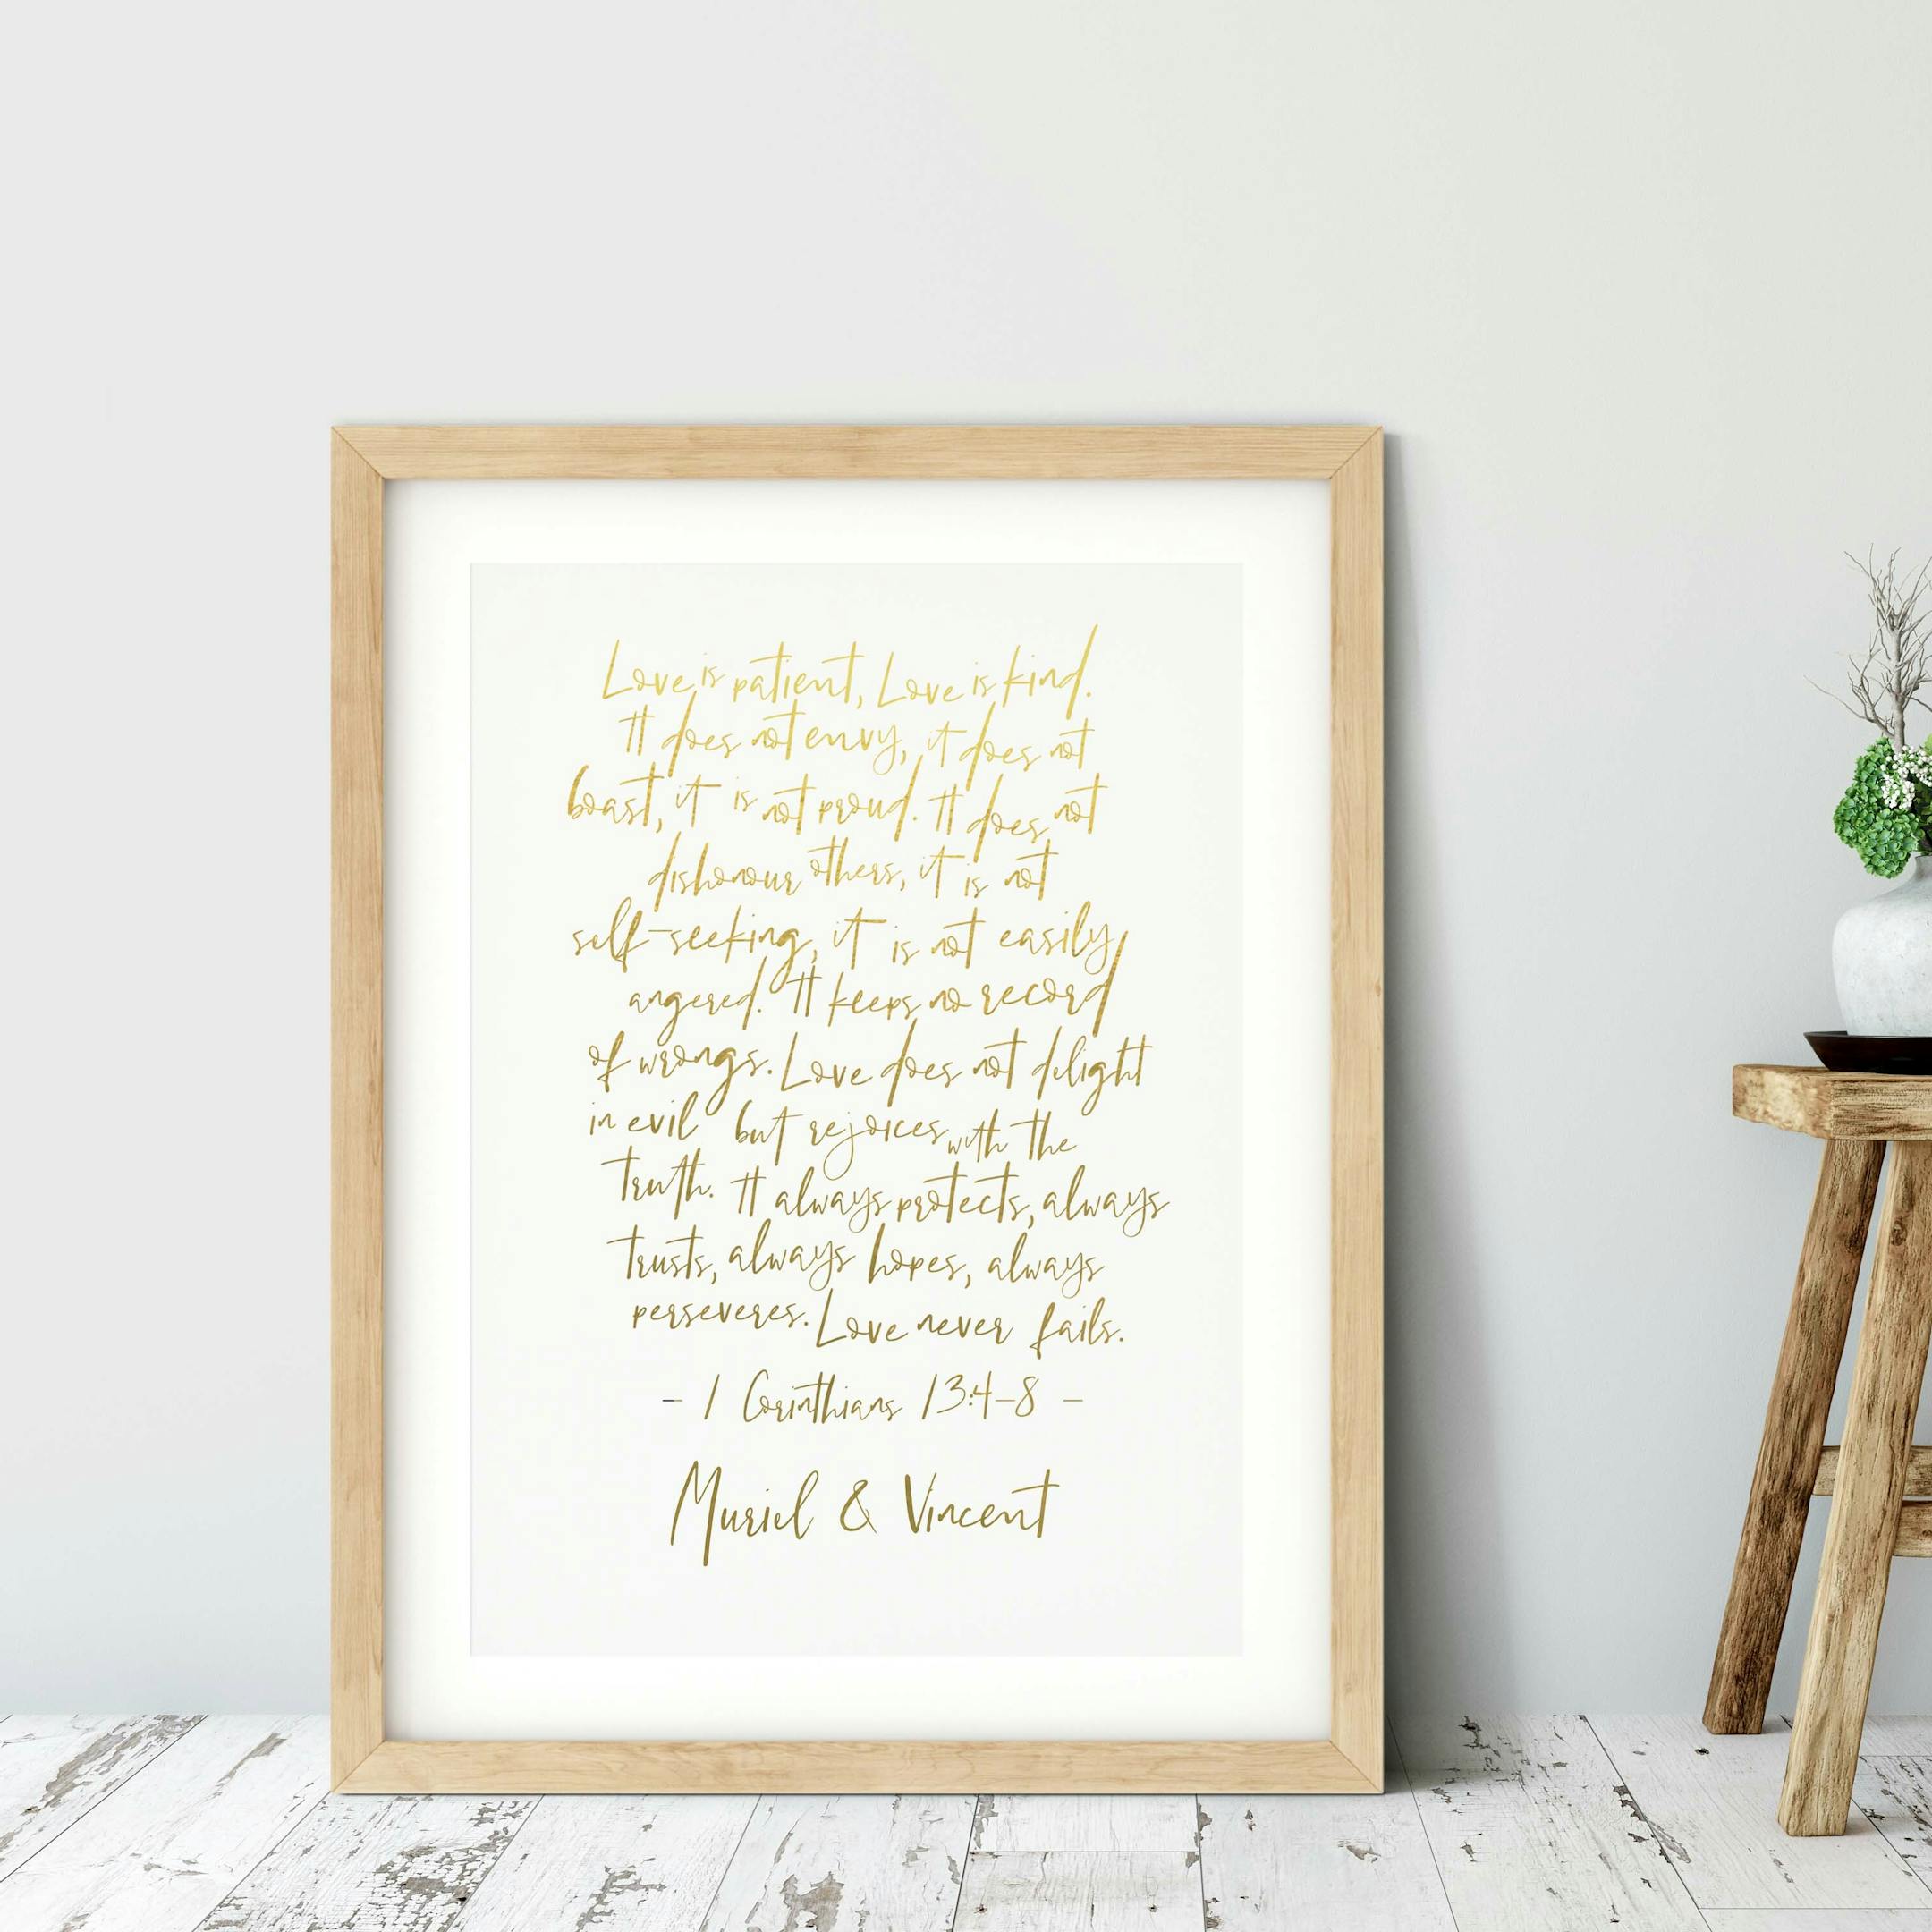 Love is patient, Love is kind.
It does not envy, it does not
boast, it is not proud. It does not
dishonour others, it is not
self-seeking, it is not easily
angered. It keeps no record
of wrongs. Love does not delight
in evil but rejoices with the
truth. It always protects, always
trusts, always hopes, always
perseveres. Love never fails.
- 1 Corinthians 13:4-8 -
Muriel & Vincent